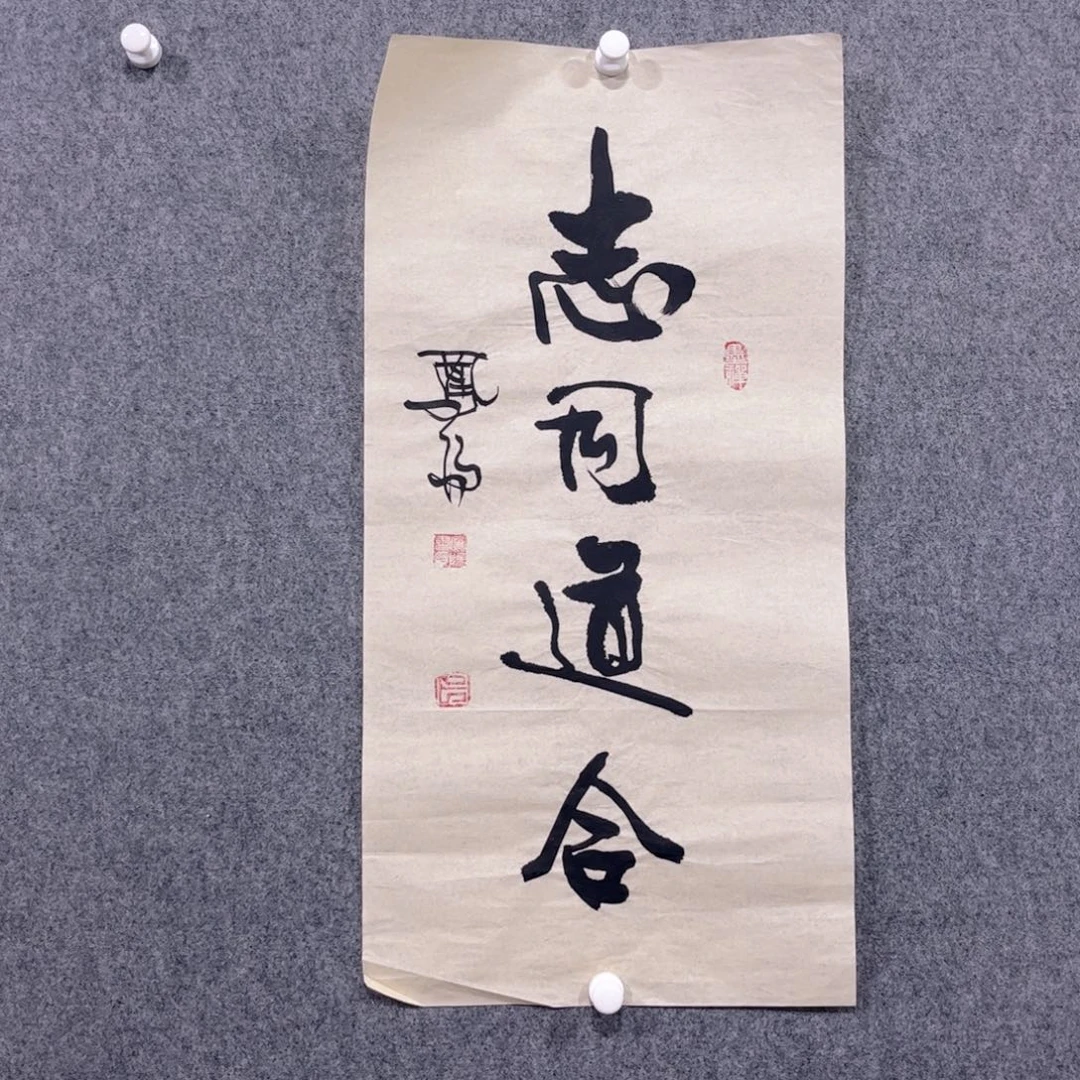 志同道合